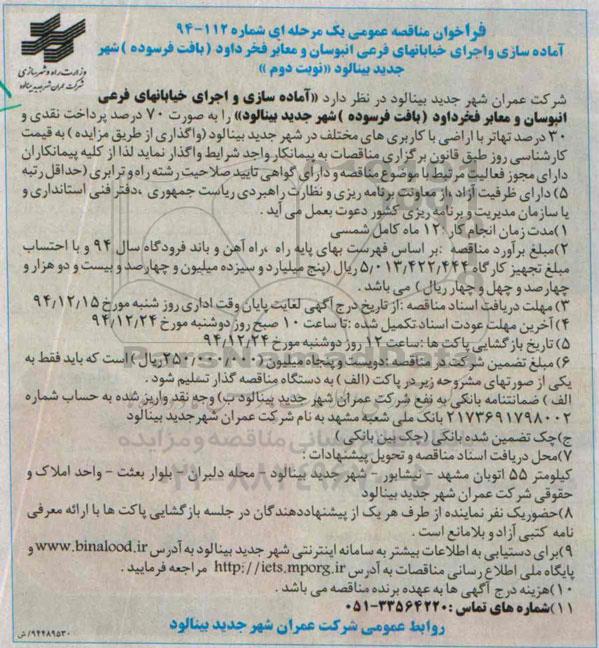 فراخوان مناقصه عمومی یک مرحله ای شماره ۱۱۲-۹۴
آماده سازی واجرای خیابانهای فرعی انبوسان و معابر فخر داود (بافت فرسوده) شهر
جدید بینالود «نوبت دوم»
وزارت راه و شهرسازی
شرکت عمران شهر جدید بینالود
شرکت عمران شهر جدید بینالود در نظر دارد «آماده سازی و اجرای خیابانهای فرعی
انبوسان و معابر فخرداود (بافت فرسوده) شهر جدید بینالود» را به صورت ۷۰ درصد پرداخت نقدی و
۳۰ درصد تهاتر با اراضی با کاربری های مختلف در شهر جدید بینالود (واگذاری از طریق مزایده) به قیمت
کارشناسی روز طبق قانون برگزاری مناقصات به پیمانکار واجد شرایط واگذار نماید لذا از کلیه پیمانکاران
دارای مجوز فعالیت مرتبط با موضوع مناقصه و دارای گواهی تایید صلاحیت رشته راه و ترابری (حداقل رتبه
۵) دارای ظرفیت آزاد، از معاونت برنامه ریزی و نظارت راهبردی ریاست جمهوری، دفتر فنی استانداری و
یا سازمان مدیریت و برنامه ریزی کشور دعوت بعمل می آید.
۱) مدت زمان انجام کار: ۱۲ ماه کامل شمسی
۲) مبلغ برآورد مناقصه: بر اساس فهرست بهای پایه راه، راه آهن و باند فرودگاه سال ۹۴ و با احتساب
مبلغ تجهیز کارگاه ۵/۰۱۳/۴۲۲/۴۴۴ ریال (پنج میلیارد و سیزده میلیون و چهارصد و بیست و دو هزار و
چهارصد و چهل و چهار ریال) می باشد.
۳) مهلت دریافت اسناد مناقصه: از تاریخ درج آگهی لغایت پایان وقت اداری روز شنبه مورخ ۹۴/۱۲/۱۵
۴) آخرین مهلت عودت اسناد تکمیل شده: تا ساعت ۱۰ صبح روز دوشنبه مورخ ۹۴/۱۲/۲۴
۵) تاریخ بازگشایی پاکت ها: ساعت ۱۲ روز دوشنبه مورخ ۹۴/۱۲/۲۴
۶) مبلغ تضمین شرکت در مناقصه: دویست و پنجاه میلیون (۲۵۰/۰۰۰/۰۰۰ ریال) است که باید فقط به
یکی از صورتهای مشروحه زیر در پاکت (الف) به دستگاه مناقصه گذار تسلیم شود.
الف) ضمانتنامه بانکی به نفع شرکت عمران شهر جدید بینالود ب) وجه نقد واریز شده به حساب شماره
۲۱۷۳۶۹۱۷۹۸۰۰۲ بانک ملی شعبه مشهد به نام شرکت عمران شهر جدید بینالود
ج) چک تضمین شده بانکی (چک بین بانکی)
۷) محل دریافت اسناد مناقصه و تحویل پیشنهادات:
کیلومتر ۵۵ اتوبان مشهد - نیشابور - شهر جدید بینالود - محله دلبران - بلوار بعثت - واحد املاک و
حقوقی شرکت عمران شهر جدید بینالود
۸) حضوریک نفر نماینده از طرف هر یک از پیشنهاددهندگان در جلسه بازگشایی پاکت ها با ارائه معرفی
نامه کتبی آزاد و بلامانع است.
۹) برای دستیابی به اطلاعات بیشتر به سامانه اینترنتی شهر جدید بینالود به آدرس www.binalood.ir و
پایگاه ملی اطلاع رسانی مناقصات به آدرس http://iets.mporg.ir مراجعه فرمایید.
۱۰) هزینه درج آگهی ها به عهده برنده مناقصه می باشد.
۱۱) شماره های تماس: ۳۳۵۶۴۲۲۰-۰۵۱
روابط عمومی شرکت عمران شهر جدید بینالود
۹۴۴۸۹۵۳۰/ش